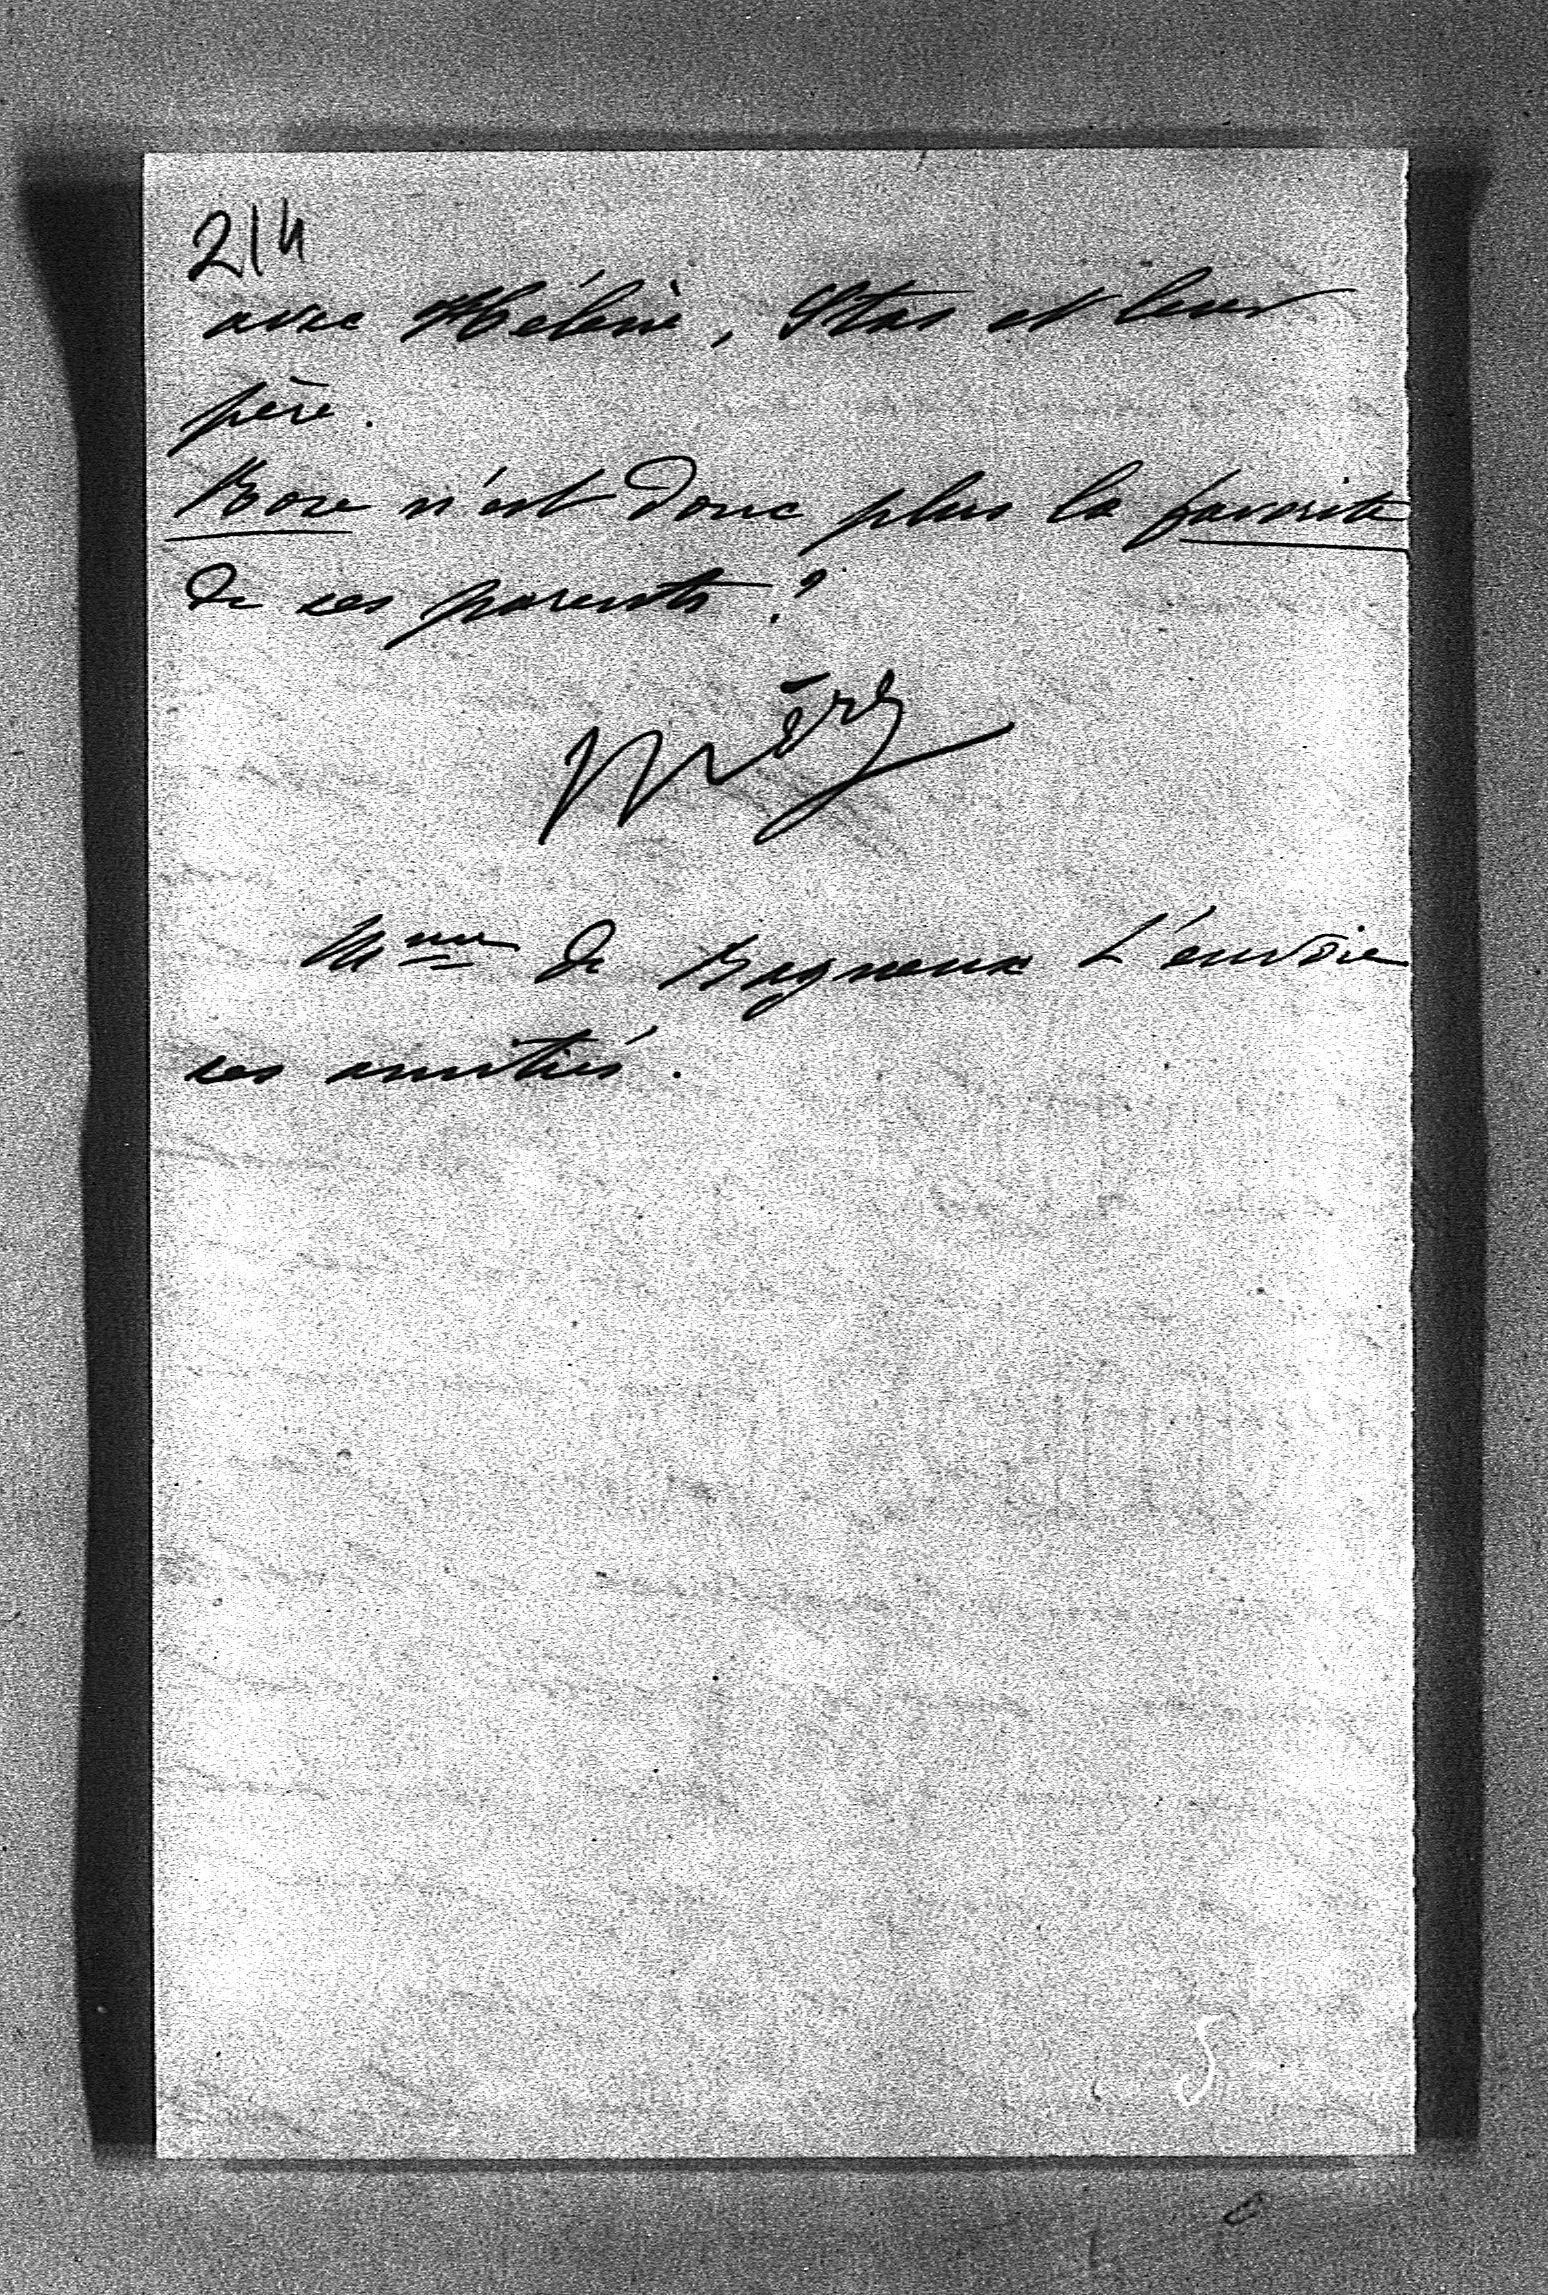 214
avec Hélène, Stas et leur
père.
Rose n'est donc plus la favorite
de ses parents ?
Méry
Mme de Bagneux t'envoie
ses amitiés.
5